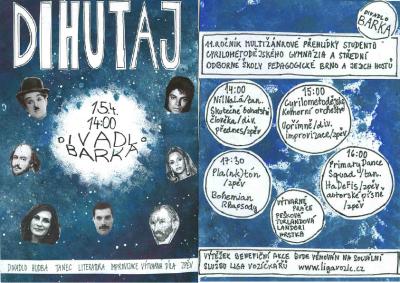 DIHUTAJ
15.4.
14:00
DIVADLO
BARKA
DIVADLO HUDBA TANEC LITERATURA IMPROVIZACE VÝTVARNÁ DÍLA ZPĚV
DIVADLO
BARKA
11. ROČNÍK MULTIŽÁNROVÉ PŘEHLÍDKY STUDENTŮ
CYRILOMETODĚJSKÉHO GYMNÁZIA A STŘEDNÍ
ODBORNÉ ŠKOLY PEDAGOGICKÉ BRNO A JEJICH HOSTŮ
14:00
/tan.
Skutečné bohatství
člověka/div.
přednes/zpěv
15:00
Cyrilometodějský
Komorní orchestr
/div.
Improvizace/zpěv
17:30
Pla(nk)tón
/zpěv
Bohemian
Rhapsody
16:00
Primary Dance
Squad/tan.
HaDeFis/zpěv
autorské písně
/zpěv
VÝTVARNÉ
PRÁCE
PEŠKOVÁ
TURLANDOVÁ
LANDORI
VÝTĚŽEK BENEFIČNÍ AKCE BUDE VĚNOVÁN NA SOCIÁLNÍ
SLUŽBU LIGA VOZÍČKÁŘŮ www.ligavozic.cz